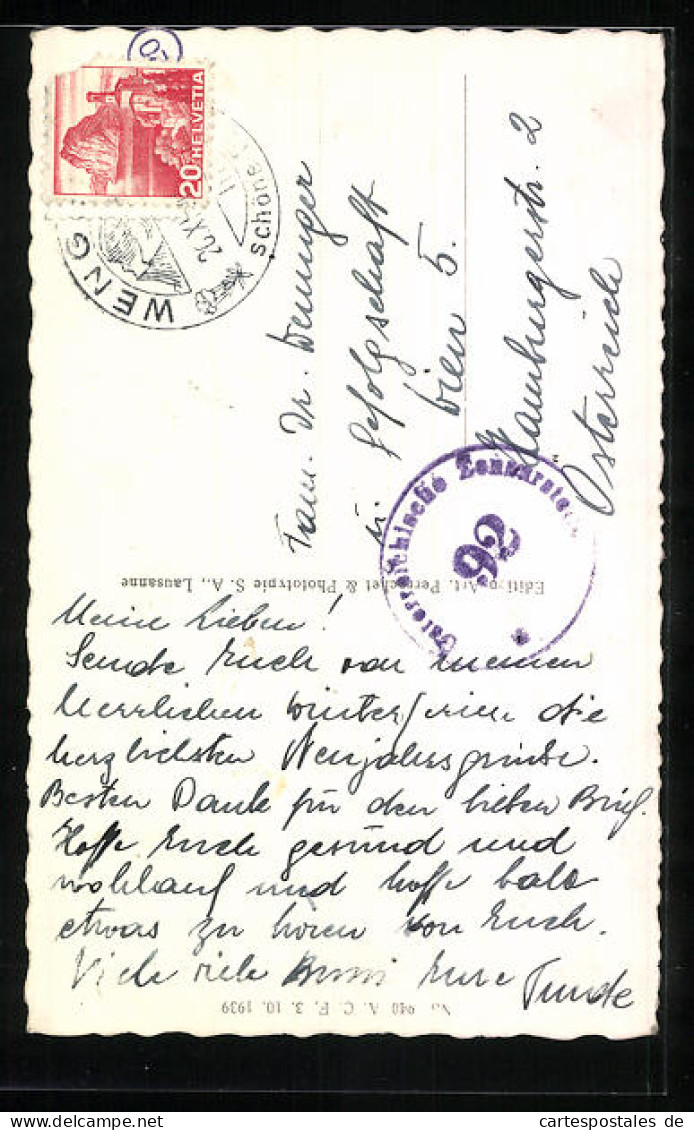 20 HELVETIA
WENG
schöne
Fam. Dr. Wenninger
Gefolgschaft
Wien 5.
Hamburgerstr. 2
Österreich
Österreichische Zensurstelle
92
Edition Art. Perrochet & Phototypie S. A., Lausanne
Meine Lieben!
Sende Euch von meinen
herrlichen Winterferien die
herzlichsten Neujahrsgrüsse.
Besten Dank für den lieben Brief.
Hoffe Euch gesund und
wohlauf und hoffe bald
etwas zu hören von Euch.
Viele viele Bussi Eure
No 940 A. C. F. 3. 10. 1939
cartespostales.de